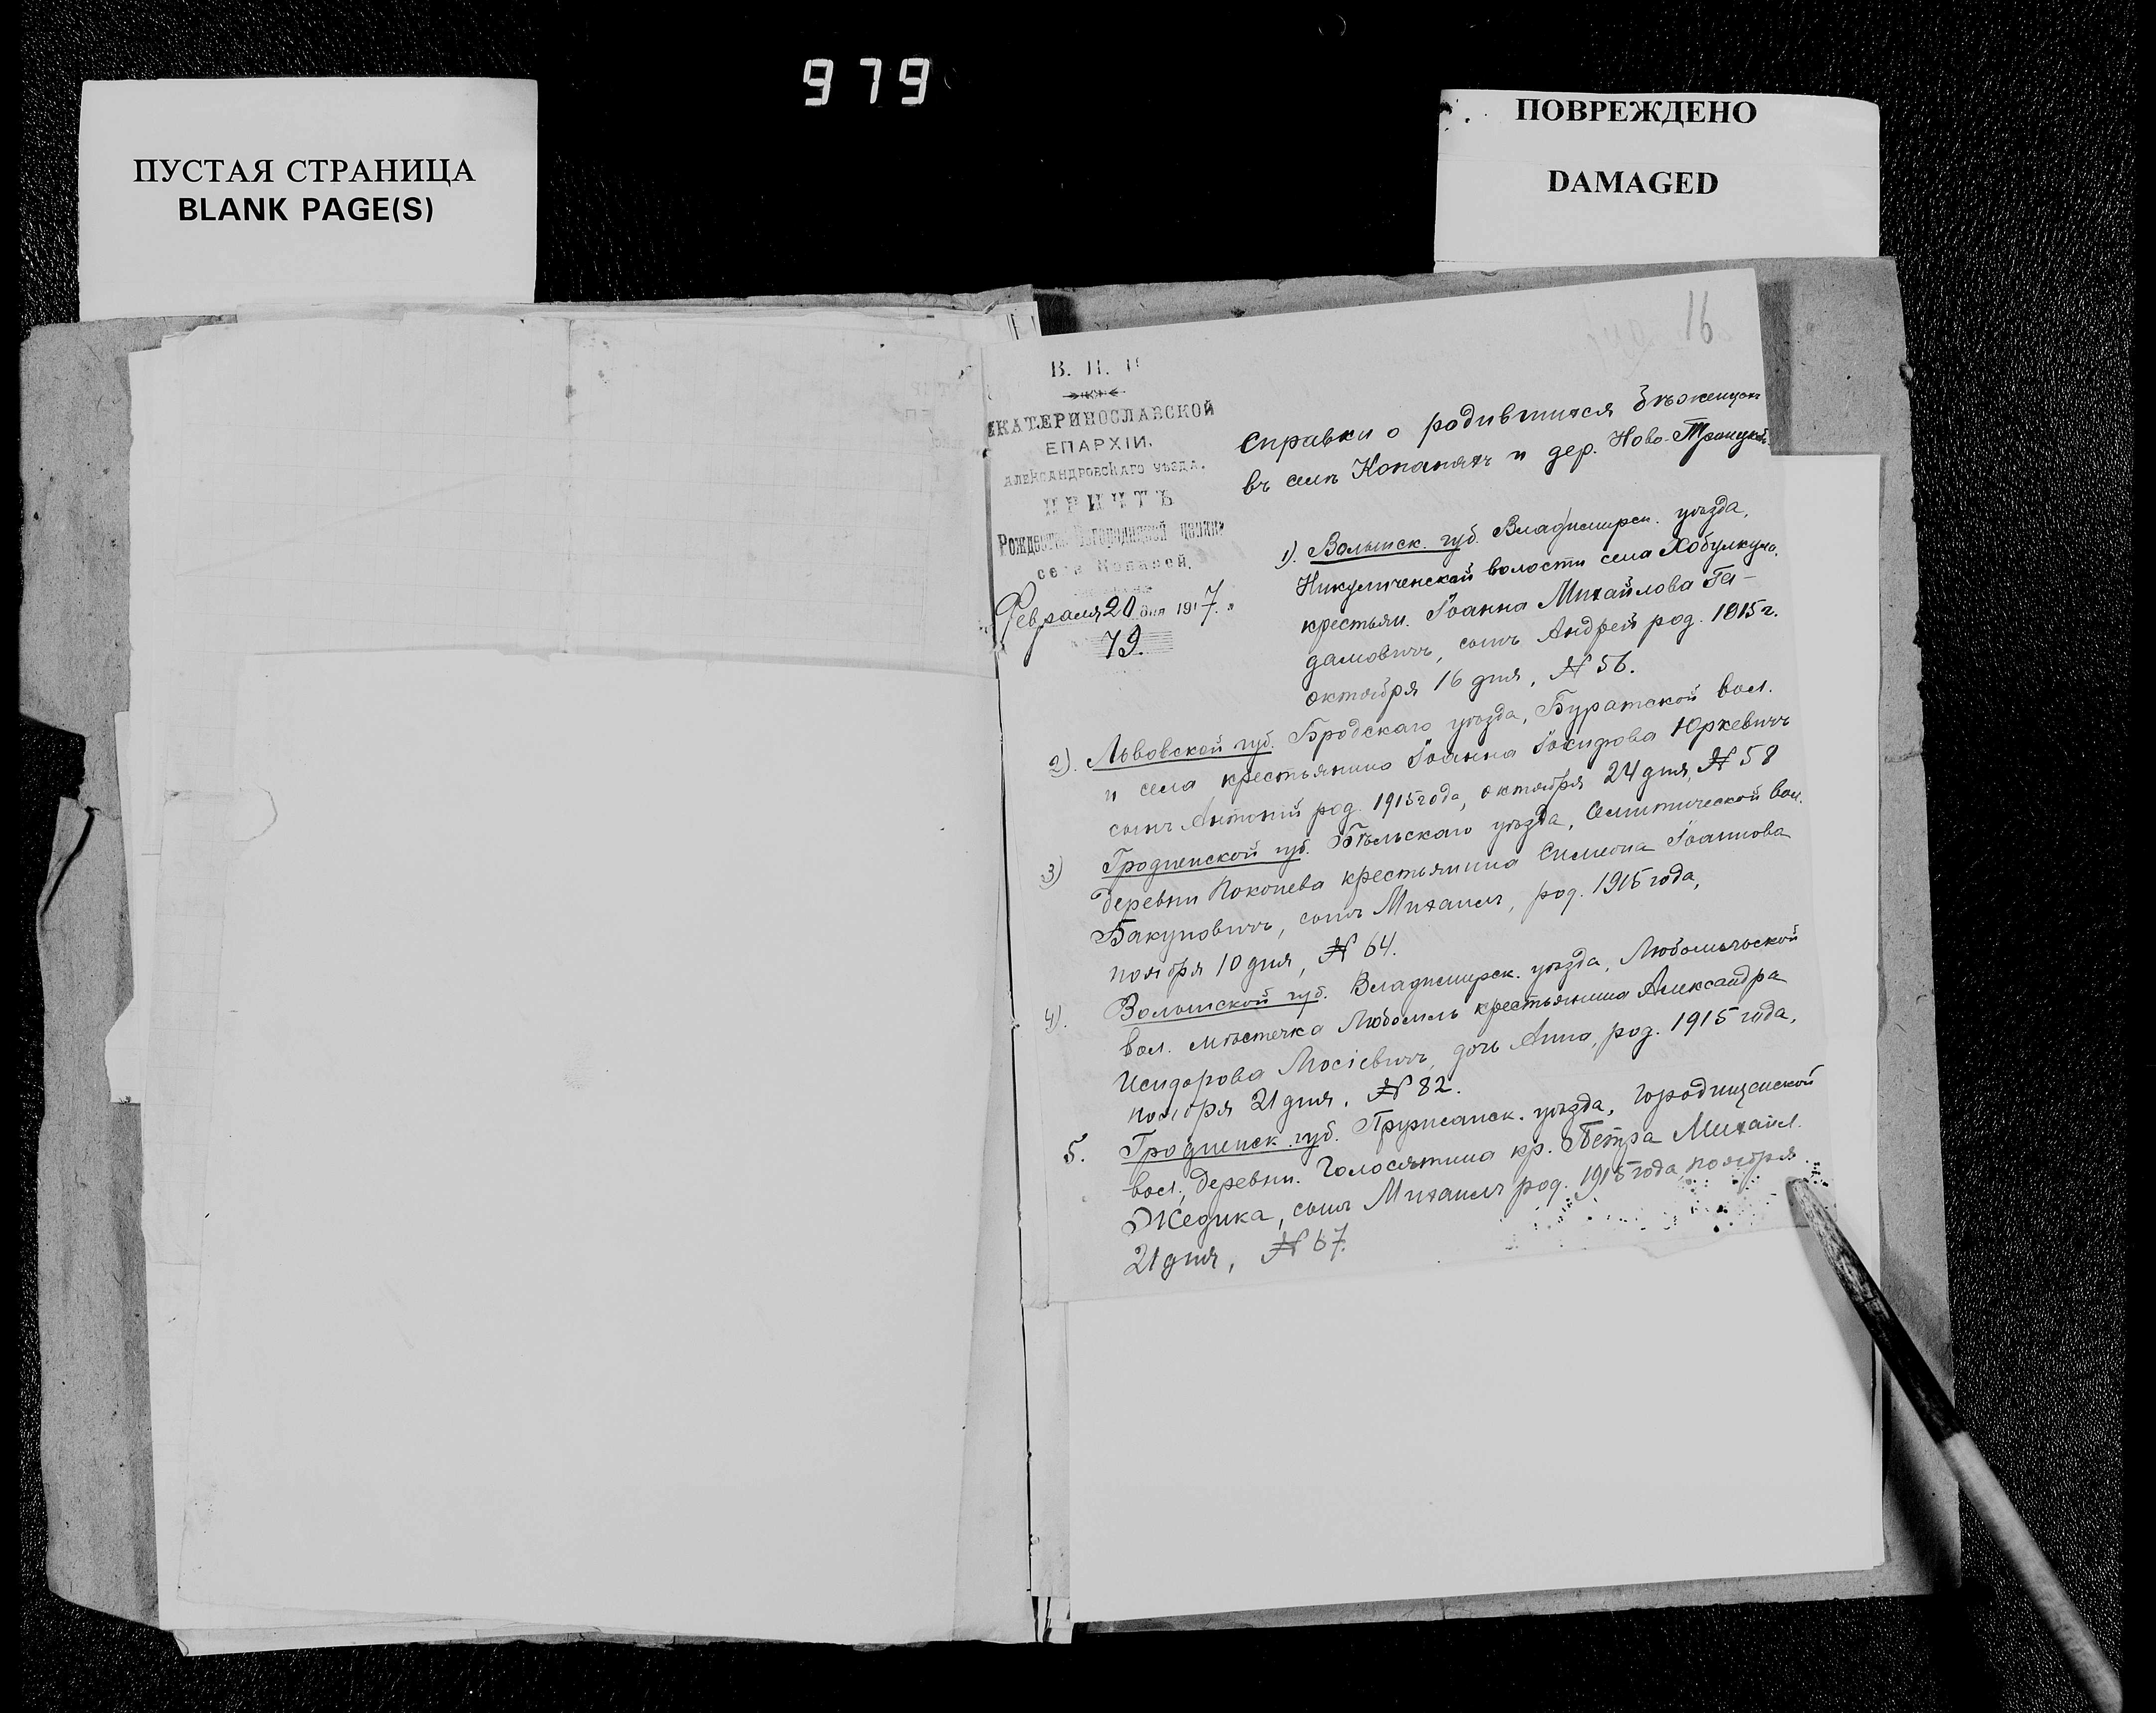 979
ПУСТАЯ СТРАНИЦА
BLANK PAGE(S)
ПОВРЕЖДЕНО
DAMAGED
16
В. П. И
ЕКАТЕРИНОСЛАВСКОЙ
ЕПАРХІИ.
АЛЕКСАНДРОВСКАГО УѢЗДА.
ПРИЧТЪ
Рождество Богородицкой церкви
села Копаней.
Февраля 20 дня 1917 г.
79.
Справки о родившихся бѣженцевъ
въ селѣ Копаняхъ и дер. Ново-Троицкой
1). Волынск. губ. Владимирск. уѣзда,
волости села Хобулкино,
крестьян. Іоанна Михайлова Га-
дамовичъ, сынъ Андрей род. 1915 г.
октября 16 дня, № 56.
2). Львовской губ. Бродскаго уѣзда, Буратской вол.
и села крестьянина Іоанна Іосифова Юркевичъ
сынъ Антоній род. 1915 года, октября 24 дня, № 58
3) Гродненской губ. Бѣльскаго уѣзда, вол.
деревни Поконева крестьянина Симеона Іоаннова
Бакуновичъ, сынъ Михаилъ, род. 1915 года,
ноября 10 дня, № 64.
4). Волынской губ. Владимирск. уѣзда, Любомльской
вол. мѣстечка Любомль крестьянина Александра
Исидорова Мосіевичъ, дочь Анна, род. 1915 года,
ноября 21 дня, № 82.
5. Гродненск. губ. Пружанск. уѣзда, Городищенской
вол., деревни. Голосятина кр. Петра Михайл.
Жедика, сынъ Михаилъ род. 1915 года ноября
21 дня, № 67.